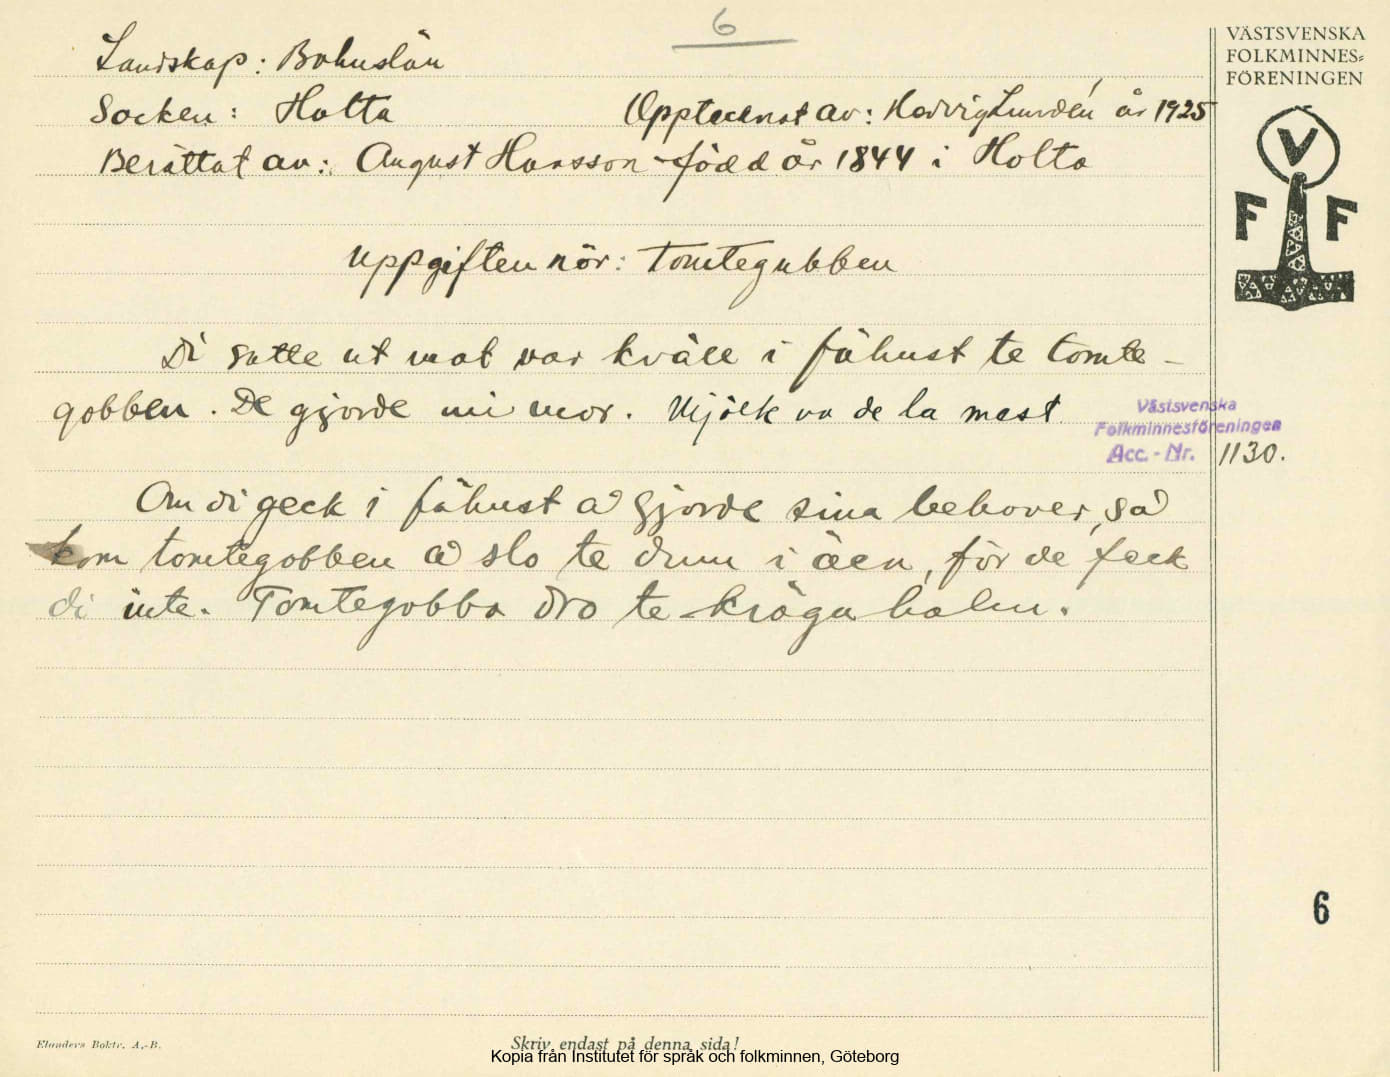 6
VÄSTSVENSKA
FOLKMINNES=
FÖRENINGEN
Landskap: Bohuslän
Socken: Holta
Upptecknat av: Hedvig Lundén år 1925
Berättat av: August Hansson född år 1844 i Holta
V
F F
Uppgiften rör: Tomtegubben
Di satte ut mat var kväll i fähust te tomte-
gobben. De gjorde mi mor. Mjölk va de la mest
Västsvenska
Folkminnesföreningen
Acc.-Nr. 1130.
Om di geck i fähust å gjorde sina behover, så
kom tomtegobben å slo te dum i äen, för de feck
di inte. Tomtegobba dro te
6
Elanders Boktr. A.-B.
Skriv endast på denna sida!
Kopia från Institutet för språk och folkminnen, Göteborg